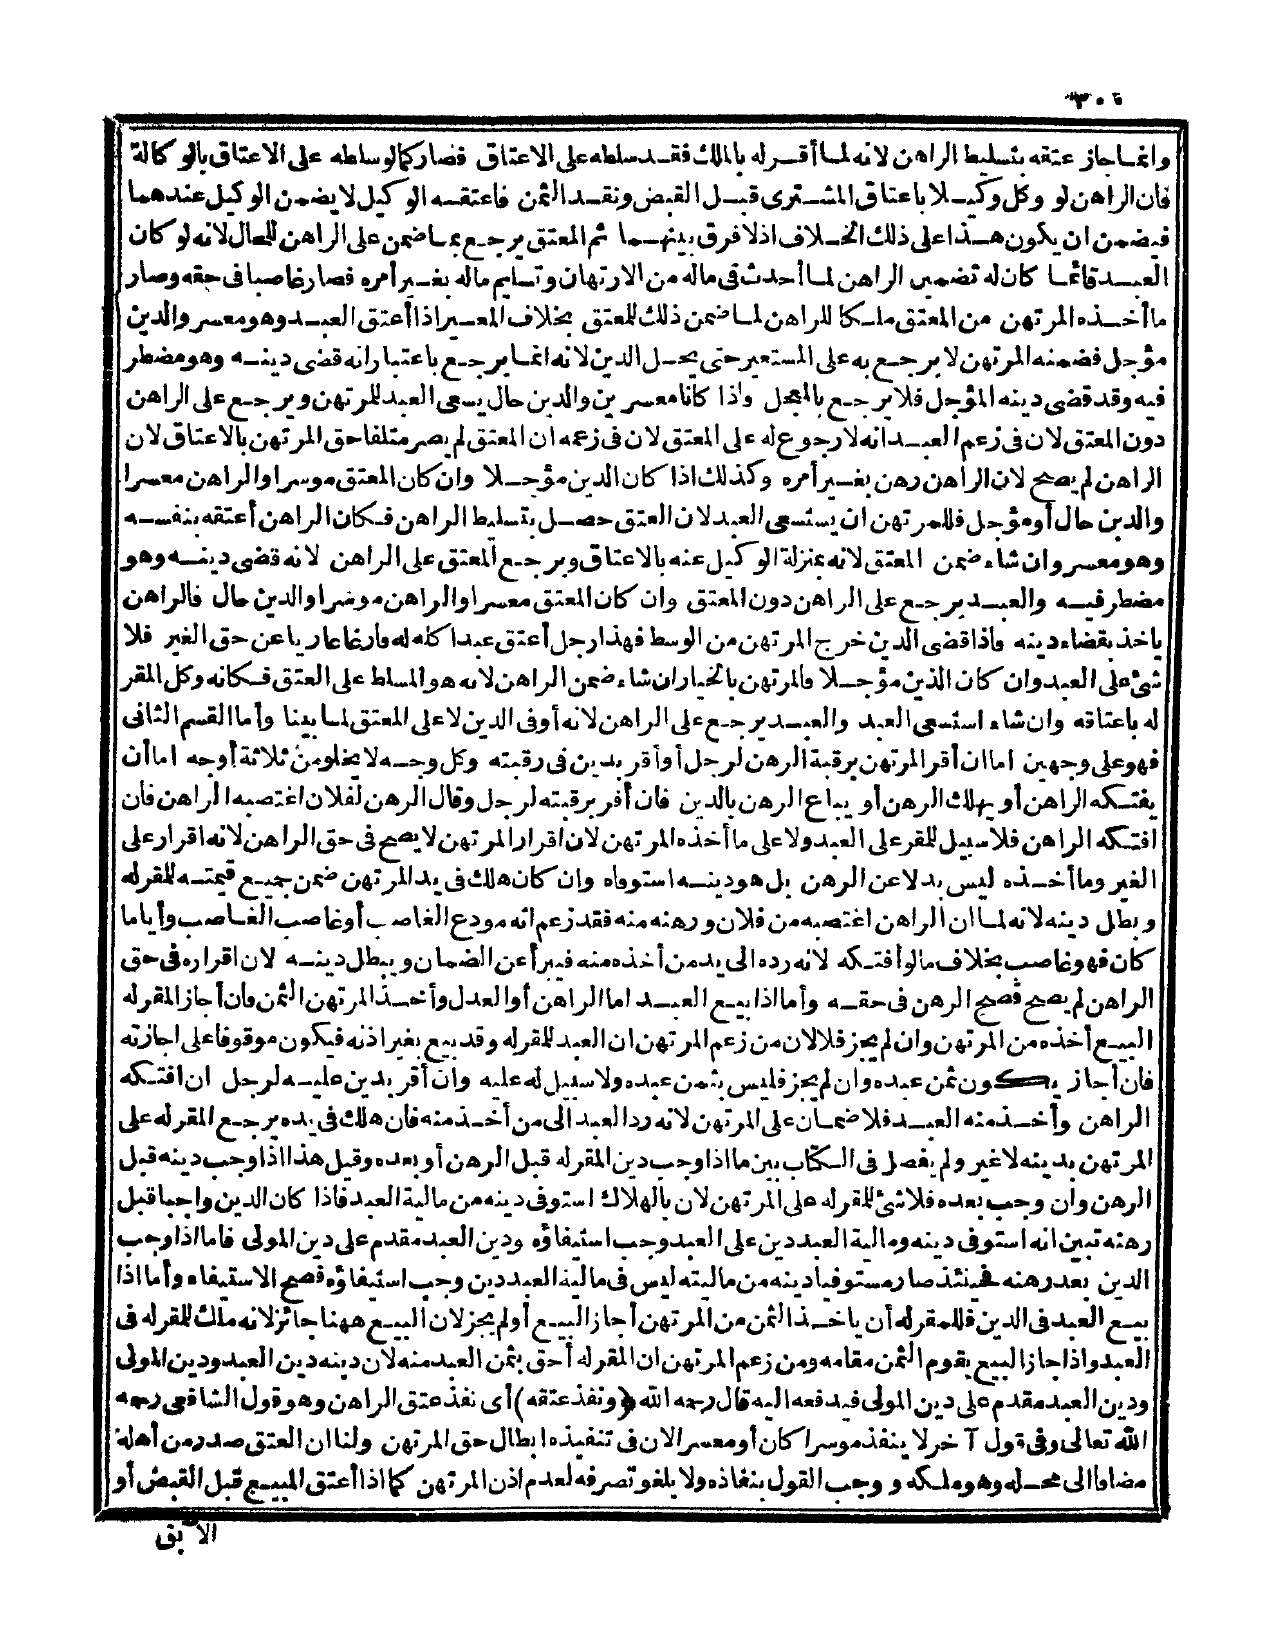 ٣٠٦
وانما جاز عتقه بتسليط الراهن لانه لما أقر له بالملك فقد سلطه على الاعتاق فصار كما لو سلطه على الاعتاق بالوكالة
فان الراهن لو وكل وكيلا باعتاق المشترى قبل القبض ونقد الثمن فاعتقه الوكيل لا يضمن الوكيل عندهما
فيضمن ان يكون هذا على ذلك الخلاف اذ لا فرق بينهما ثم المعتق يرجع بما ضمن على الراهن للحال لانه لو كان
العبد قائما كان له تضمين الراهن لما أحدث فى ماله من الارتهان وتسليم ماله بغير أمره فصار غاصبا فى حقه وصار
ما أخذه المرتهن من المعتق ملكا للراهن لما ضمن ذلك للمعتق بخلاف المعير اذا أعتق العبد وهو معسر والدين
مؤجل فضمنه المرتهن لا يرجع به على المستعير حتى يحل الدين لانه انما يرجع باعتبار انه قضى دينه وهو مضطر
فيه وقد قضى دينه المؤجل فلا يرجع بالمعجل واذا كانا معسرين والدين حال يسعى العبد للمرتهن ويرجع على الراهن
دون المعتق لان فى زعم العبد انه لا رجوع له على المعتق لان فى زعمه ان المعتق لم يصر متلفا حق المرتهن بالاعتاق لان
الراهن لم يصح لان الراهن رهن بغير أمره وكذلك اذا كان الدين مؤجلا وان كان المعتق موسرا والراهن معسرا
والدين حال أو مؤجل فللمرتهن ان يستسعى العبد لان العتق حصل بتسليط الراهن فكان الراهن أعتقه بنفسه
وهو معسر وان شاء ضمن المعتق لانه بمنزلة الوكيل عنه بالاعتاق ويرجع المعتق على الراهن لانه قضى دينه وهو
مضطر فيه والعبد يرجع على الراهن دون المعتق وان كان المعتق معسرا والراهن موسرا والدين حال فالراهن
ياخذ بقضاء دينه فاذا قضى الدين خرج المرتهن من الوسط فهذا رجل أعتق عبدا كله له فارغا عاريا عن حق الغير فلا
شئ على العبد وان كان الدين مؤجلا فالمرتهن بالخيار ان شاء ضمن الراهن لانه هو المسلط على العتق فكانه وكل المقر
له باعتاقه وان شاء استسعى العبد والعبد يرجع على الراهن لانه أوفى الدين لا على المعتق لما بينا وأما القسم الثانى
فهو على وجهين اما ان أقر المرتهن برقبة الرهن لرجل أو أقر بدين فى رقبته وكل وجه لا يخلو من ثلاثة أوجه اما أن
يفتكه الراهن أو يهلك الرهن أو يباع الرهن بالدين فان أقر برقبته لرجل وقال الرهن لفلان اغتصبه الراهن فان
افتكه الراهن فلا سبيل للمقر على العبد ولا على ما أخذه المرتهن لان اقرار المرتهن لا يصح فى حق الراهن لانه اقرار على
الغير وما أخذه ليس بدلا عن الرهن بل هو دينه استوفاه وان كان هلك فى يد المرتهن ضمن جميع قيمته للمقر له
وبطل دينه لانه لما ان الراهن اغتصبه من فلان ورهنه منه فقد زعم انه مودع الغاصب أو غاصب الغاصب وأياما
كان فهو غاصب بخلاف ما لو أفتكه لانه رده الى يد من أخذه منه فيبرأ عن الضمان ويبطل دينه لان اقراره فى حق
الراهن لم يصح فصح الرهن فى حقه وأما اذا بيع العبد اما الراهن أو العدل وأخذ المرتهن الثمن فان أجاز المقر له
البيع أخذه من المرتهن وان لم يجز فلا لان من زعم المرتهن ان العبد للمقر له وقد بيع بغير اذنه فيكون موقوفا على اجازته
فان أجاز يكون ثمن عبده وان لم يجز فليس بثمن عبده ولا سبيل له عليه وان أقر بدين عليه لرجل ان افتكه
الراهن وأخذ منه العبد فلا ضمان على المرتهن لانه رد العبد الى من أخذ منه فان هلك فى يده يرجع المقر له على
المرتهن بدينه لا غير ولم يفصل فى الكتاب بين ما اذا وجب دين المقر له قبل الرهن أو بعده وقيل هذا اذا وجب دينه قبل
الرهن وان وجب بعده فلا شئ للمقر له على المرتهن لان بالهلاك استوفى دينه من مالية العبد فاذا كان الدين واجبا قبل
رهنه تبين انه استوفى دينه ومالية العبد دين على العبد وجب استيفاؤه ودين العبد مقدم على دين المولى فاما اذا وجب
الدين بعد رهنه فحينئذ صار مستوفيا دينه من ماليته ليس فى مالية العبد دين وجب استيفاؤه فصح الاستيفاء وأما اذا
بيع العبد فى الدين فللمقر له أن ياخذ الثمن من المرتهن أجاز البيع أو لم يجز لان البيع ههنا جائز لانه ملك للمقر له فى
العبد واذا جاز البيع يقوم الثمن مقامه ومن زعم المرتهن ان المقر له أحق بثمن العبد منه لان دينه دين العبد ودين المولى
ودين العبد مقدم على دين المولى فيدفعه اليه قال رحمه الله (ونفذ عتقه) أى نفذ عتق الراهن وهو قول الشافعى رحمه
الله تعالى وفى قول آخر لا ينفذ موسرا كان أو معسرا لان فى تنفيذه ابطال حق المرتهن ولنا ان العتق صدر من أهله
مضافا الى محله وهو ملكه و وجب القول بنفاذه ولا يلغو تصرفه لعدم اذن المرتهن كما اذا أعتق المبيع قبل القبض أو
الآبق